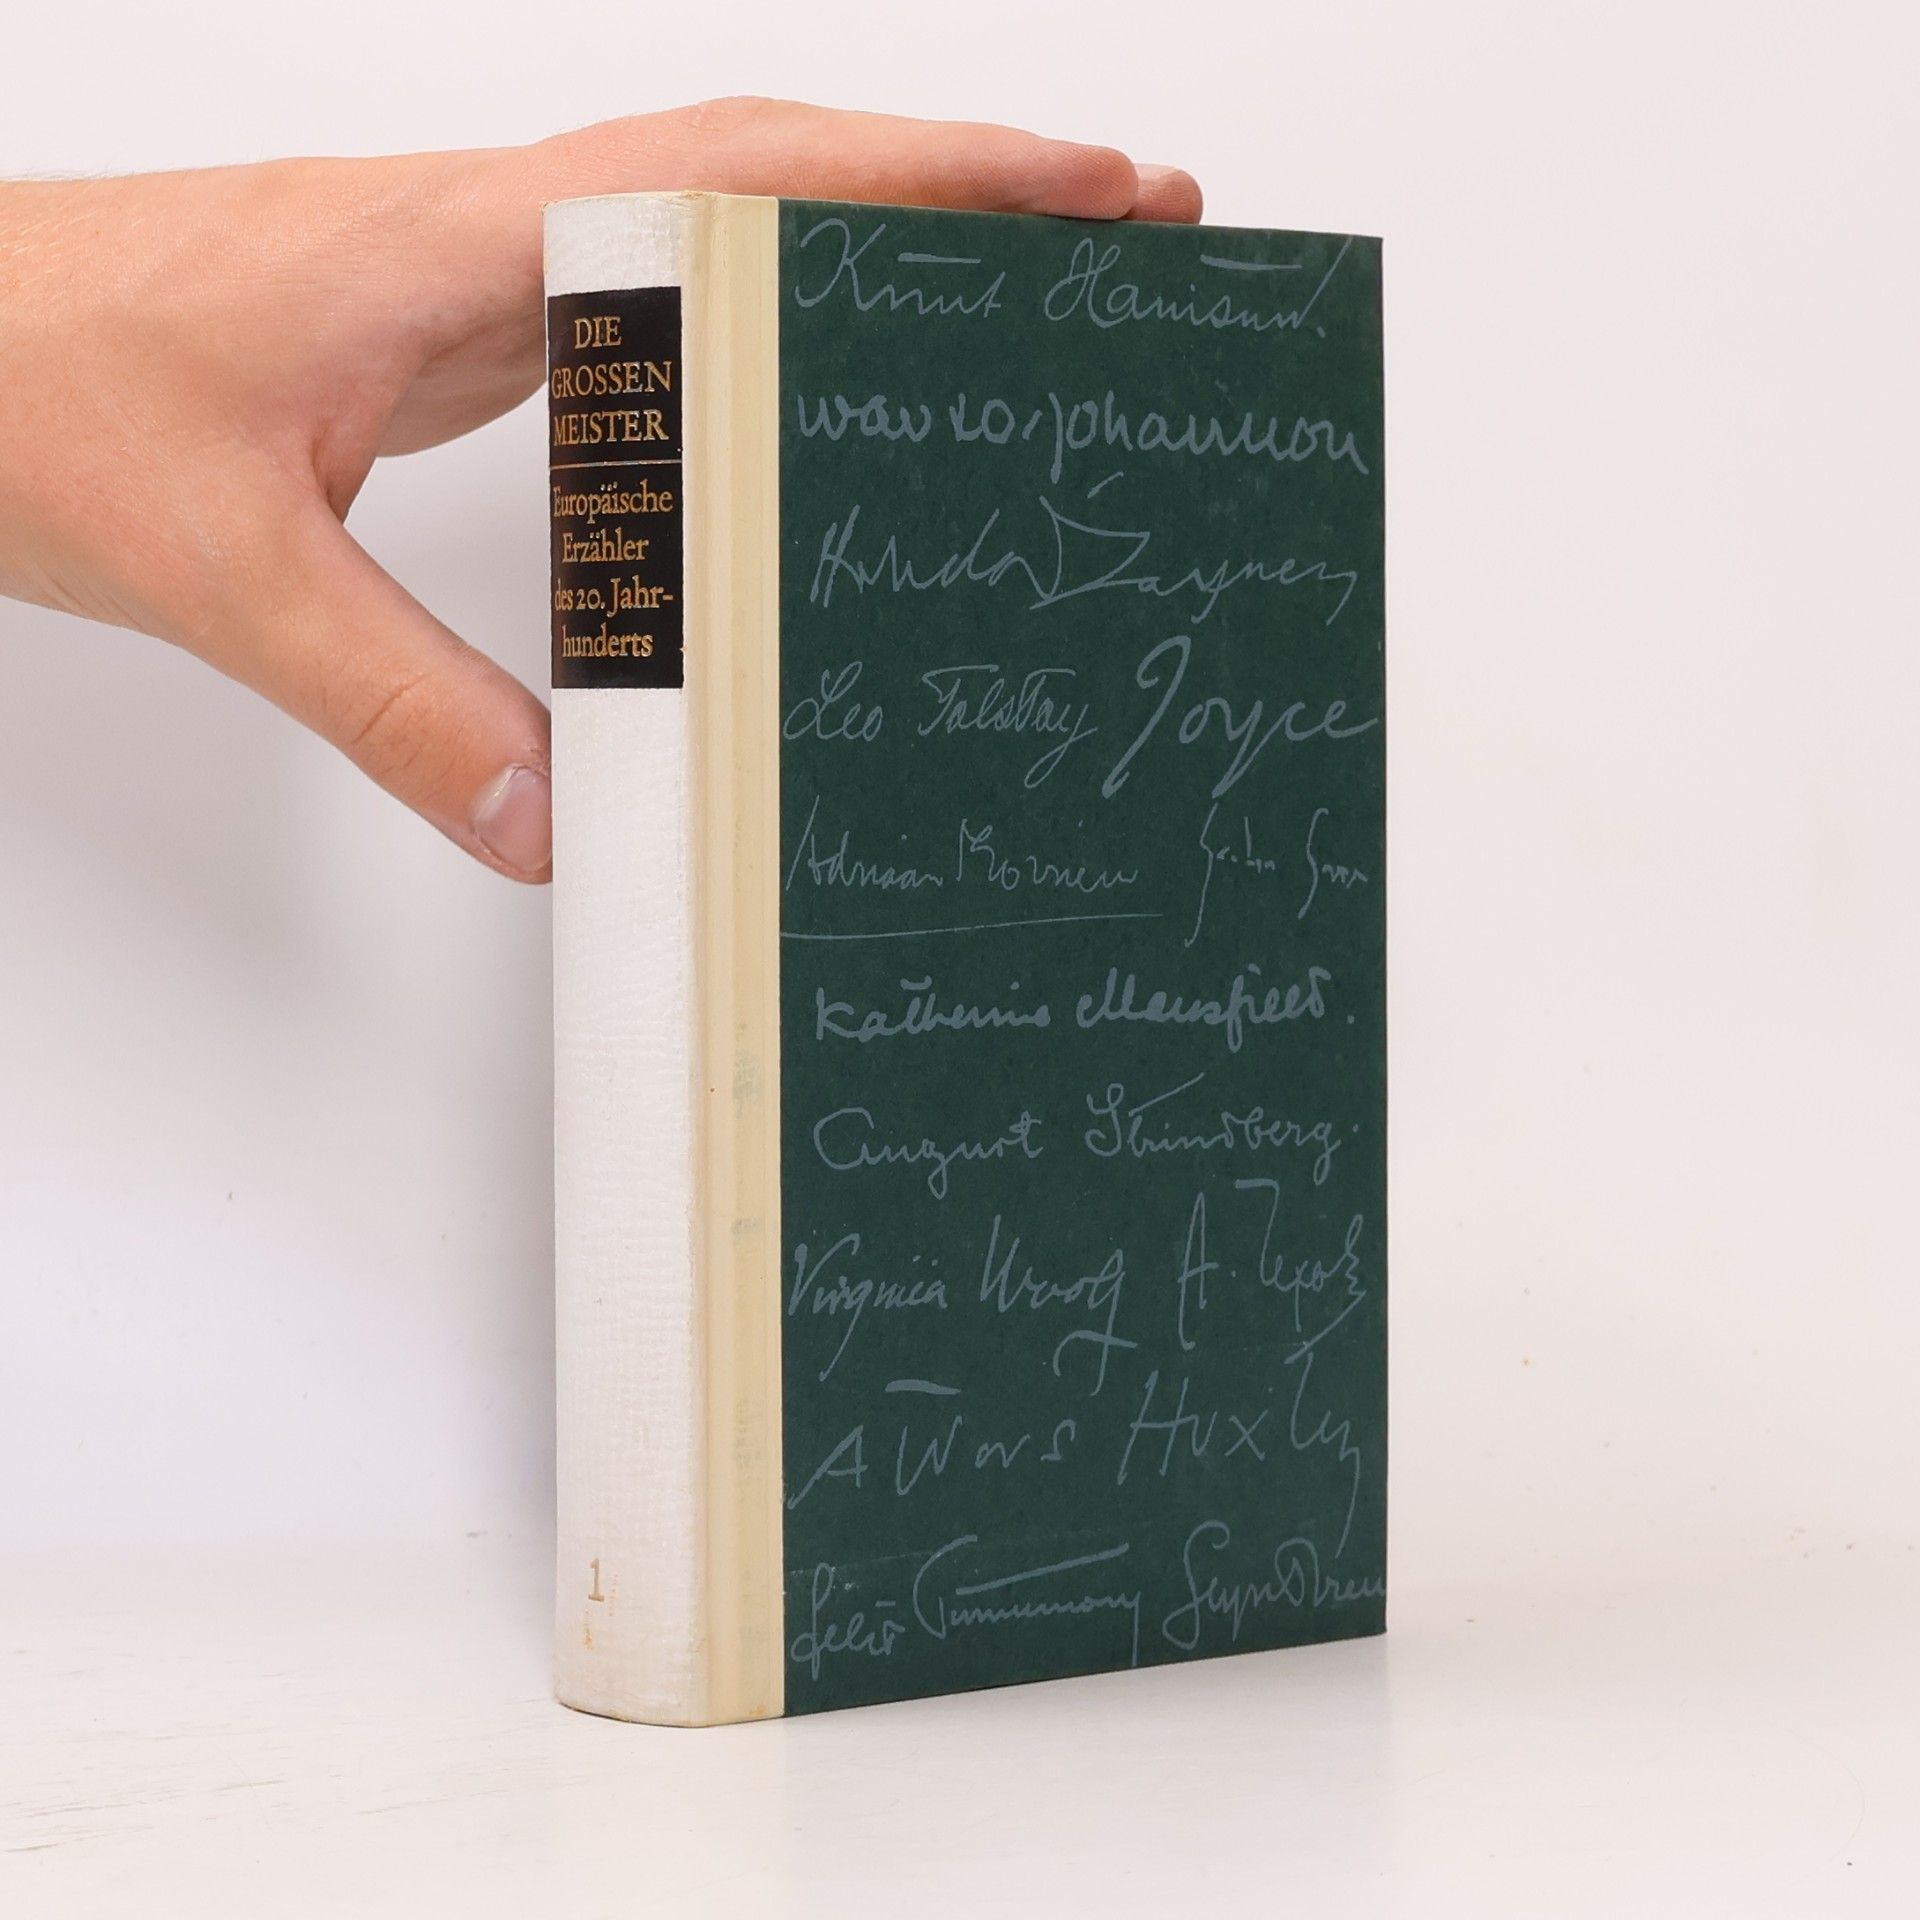 DIE
GROSSEN
MEISTER
Europäische
Erzähler
des 20. Jahr-
hunderts
1
Knut Hamsun.
Leo Tolstoy Joyce
Adriaan Morriën
Katherine Mansfield.
August Strindberg.
Virginia Woolf
Aldous Huxley
Felix Timmermans